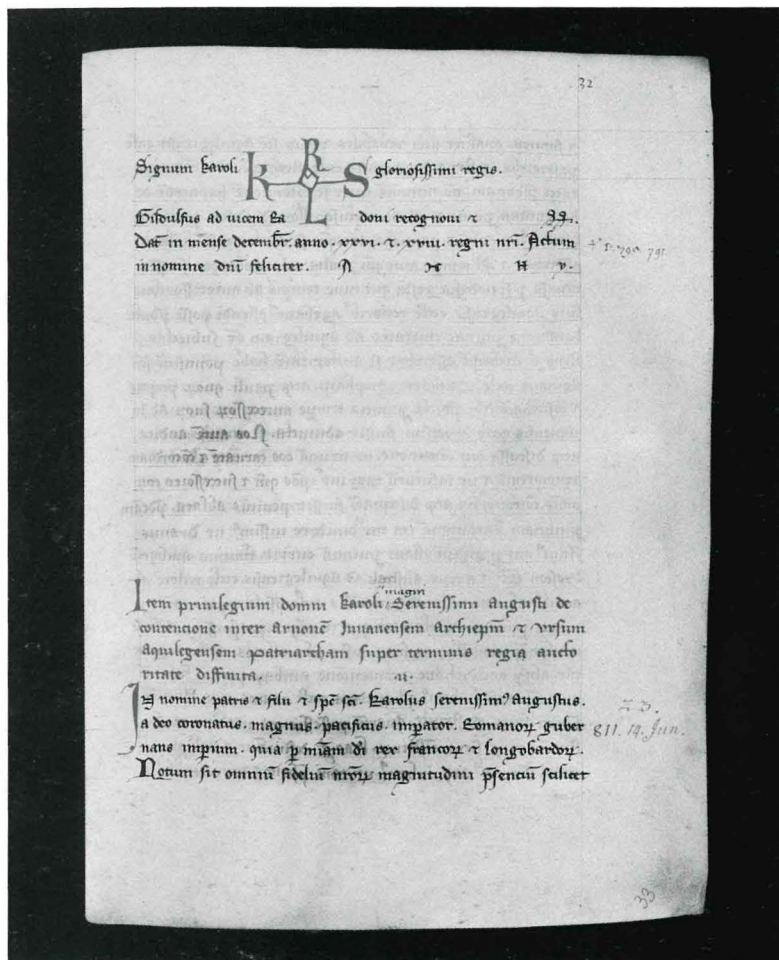 32
Signum karoli K R L S gloriosissimi regis.
Gisdulfus ad uicem Ra doni recognoui ⁊
Dat̄ in mense decembr̄. anno. xxvi. ⁊. xviii. regni nr̄i. Actum
in nomine dn̄i feliciter.
791
Item priuilegium domni karoli magni Serenissimi augusti de
contencione inter arnonē Iuuauensem archiepm̄ ⁊ vrsum
aquilegensem patriarcham super terminis regia aucto
ritate diffinita. .ii.
IN nomine patris ⁊ filii ⁊ sp̄c sc̄i. Karolus serenissimꝰ augustus.
a deo coronatus. magnus. pacificus. imp̄ator. Romanoꝝ guber
nans imp̄ium. quia p̄ mīam dī rex francoꝝ ⁊ longobardoꝝ.
Notum sit omniū fideliū nr̄oꝝ magnitudini p̄senciū scilicet
23.
811. 14. Jun.
33